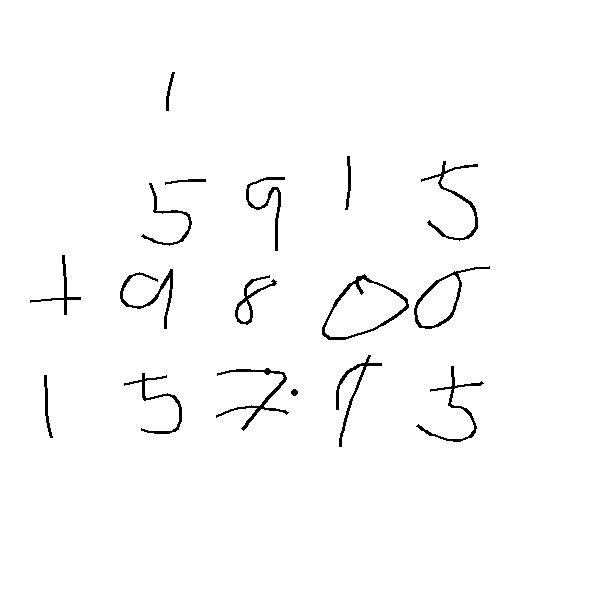 1
5915
+ 9800
15715